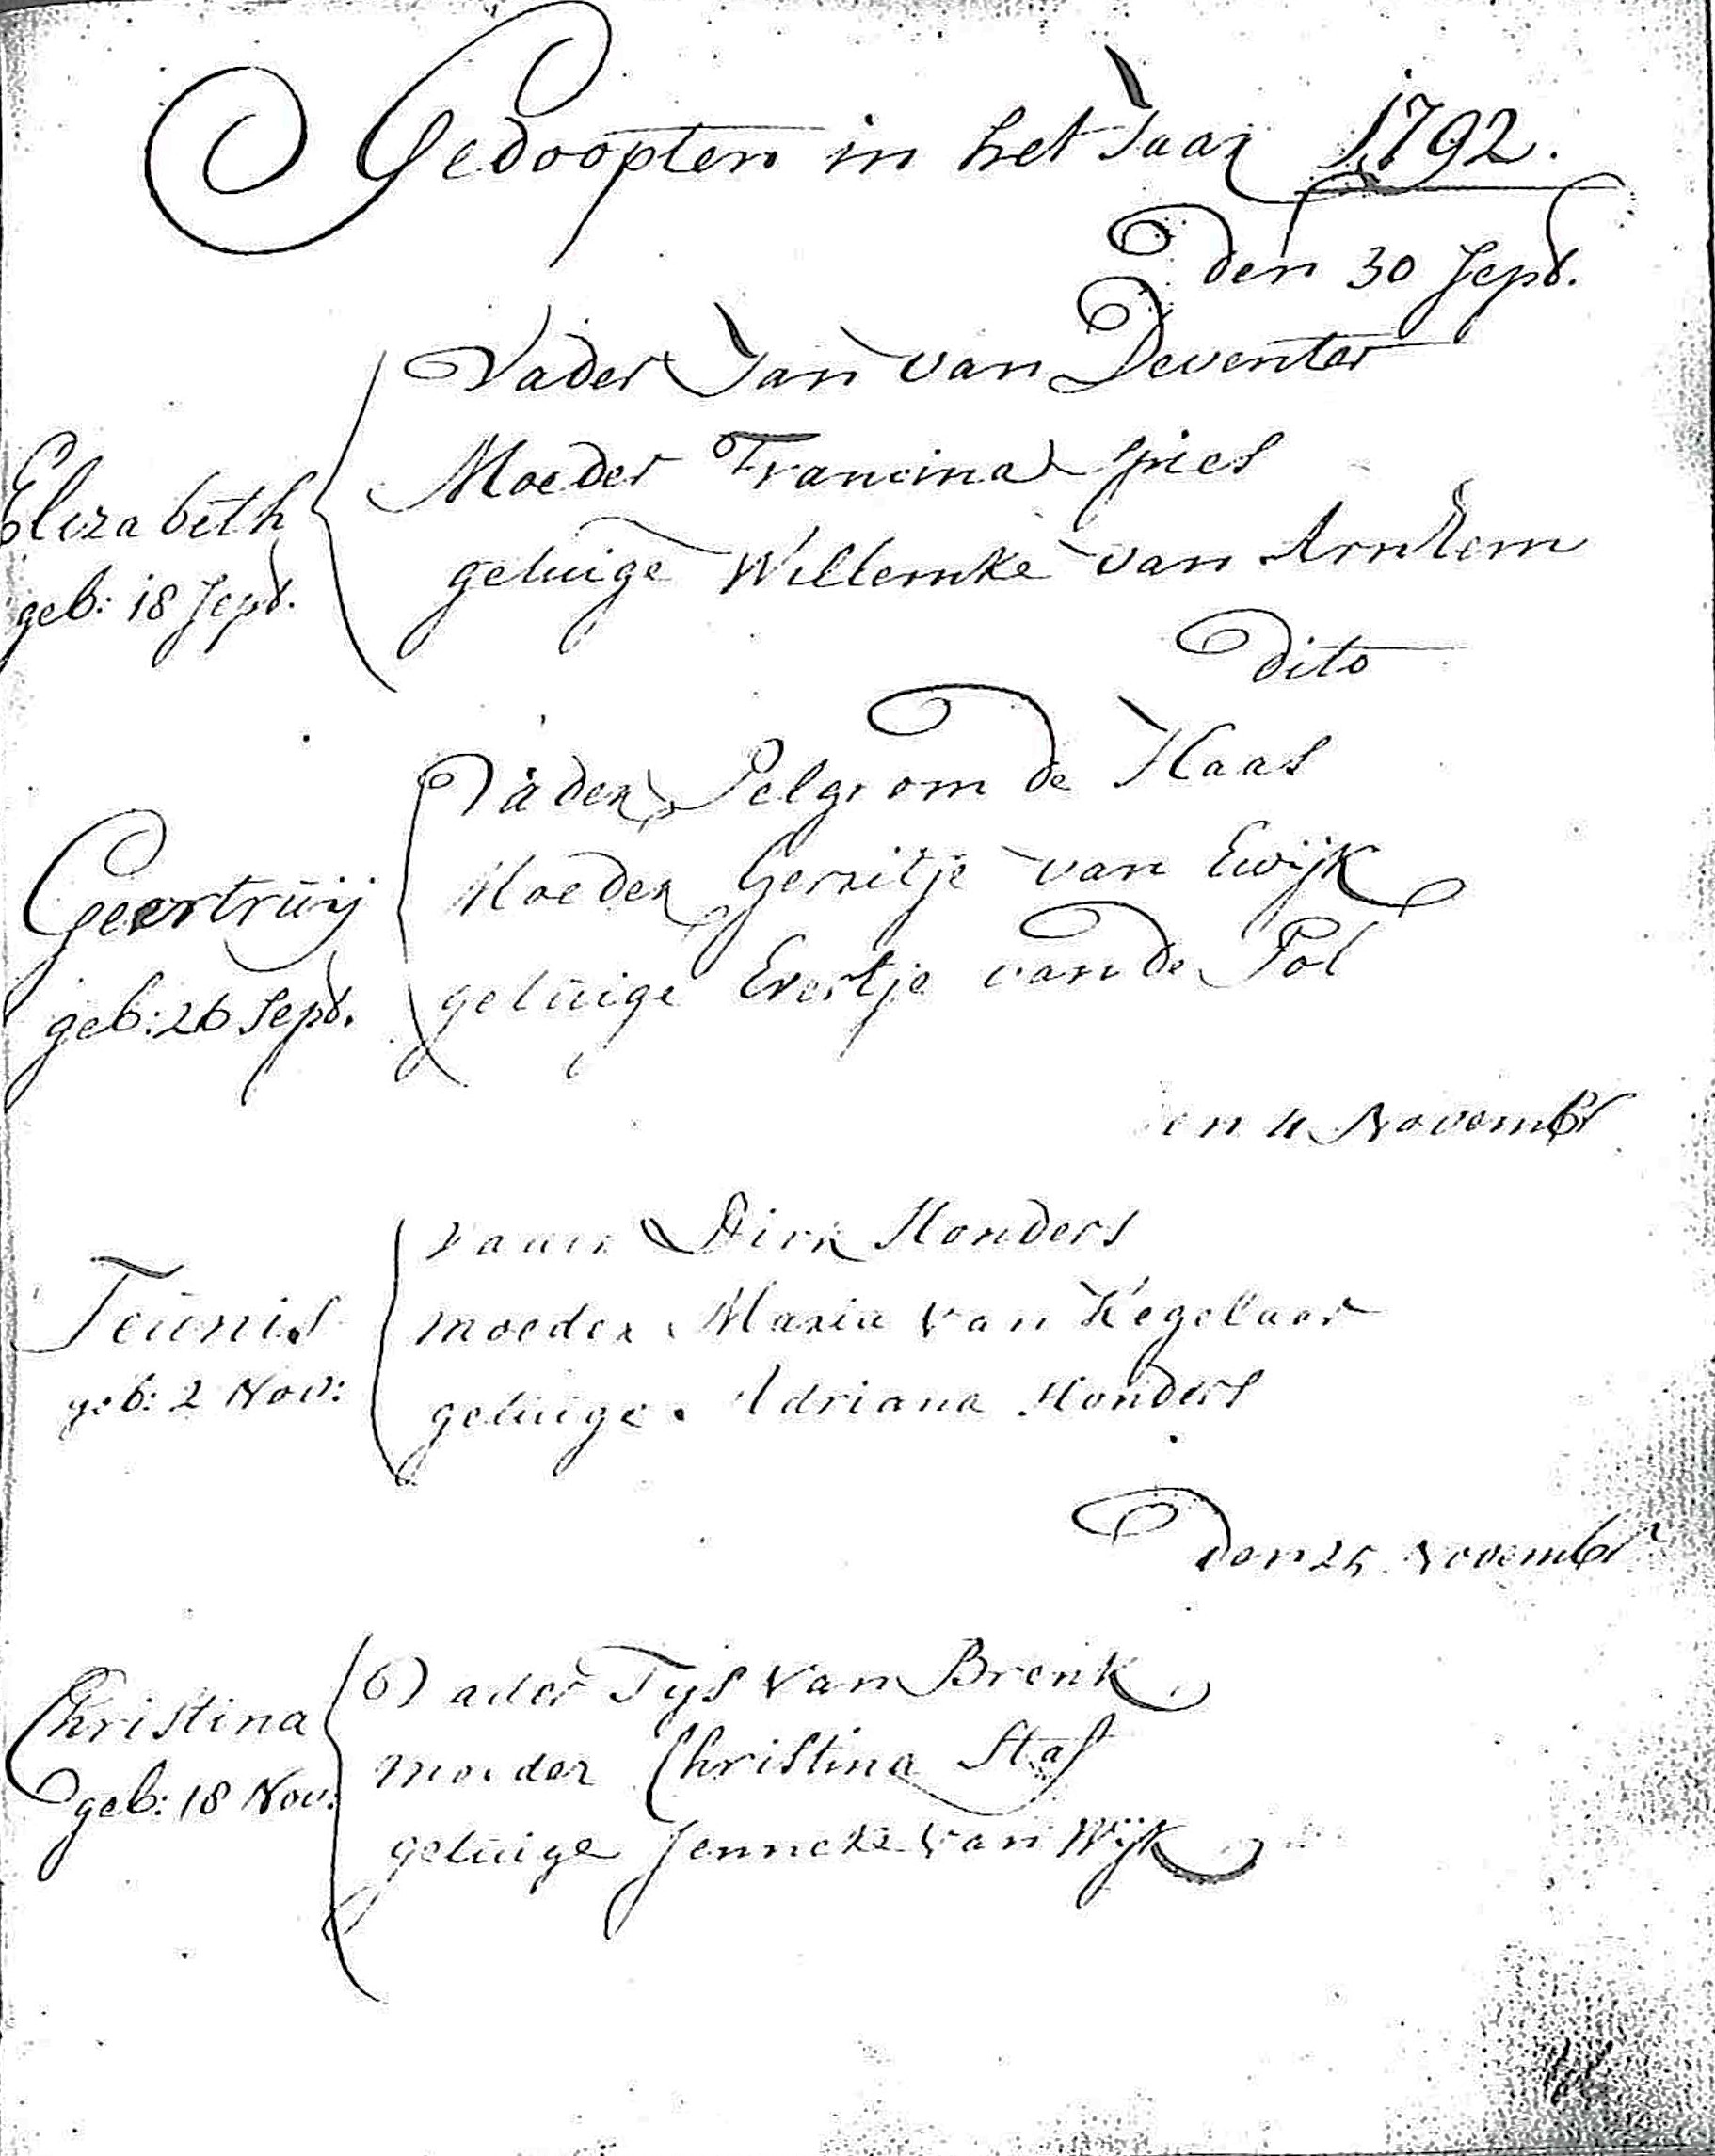 Gedoopten in het Jaar 1792.
den 30 Sept.
Vader Jan van Deventer
Moeder Francina Spies
Elizabeth
getuige Willemke van Arnhem
geb: 18 Sept.
dito
Vader Pelgrom de Haas
Moeder Gerritje van Ewijk
Geertruij
getuige Evertje van de Pol
geb: 26 Sept.
den 4 Novembr
Vader Dirk Honders
Teunis
moeder Maria van Kegelaar
geb: 2 Nov:
getuige Adriana Honders
den 25 Novembr
Vader Tijs van Brenk
Christina
moeder Christina Stas
geb: 18 Nov:
getuige Jenneke van Wijk